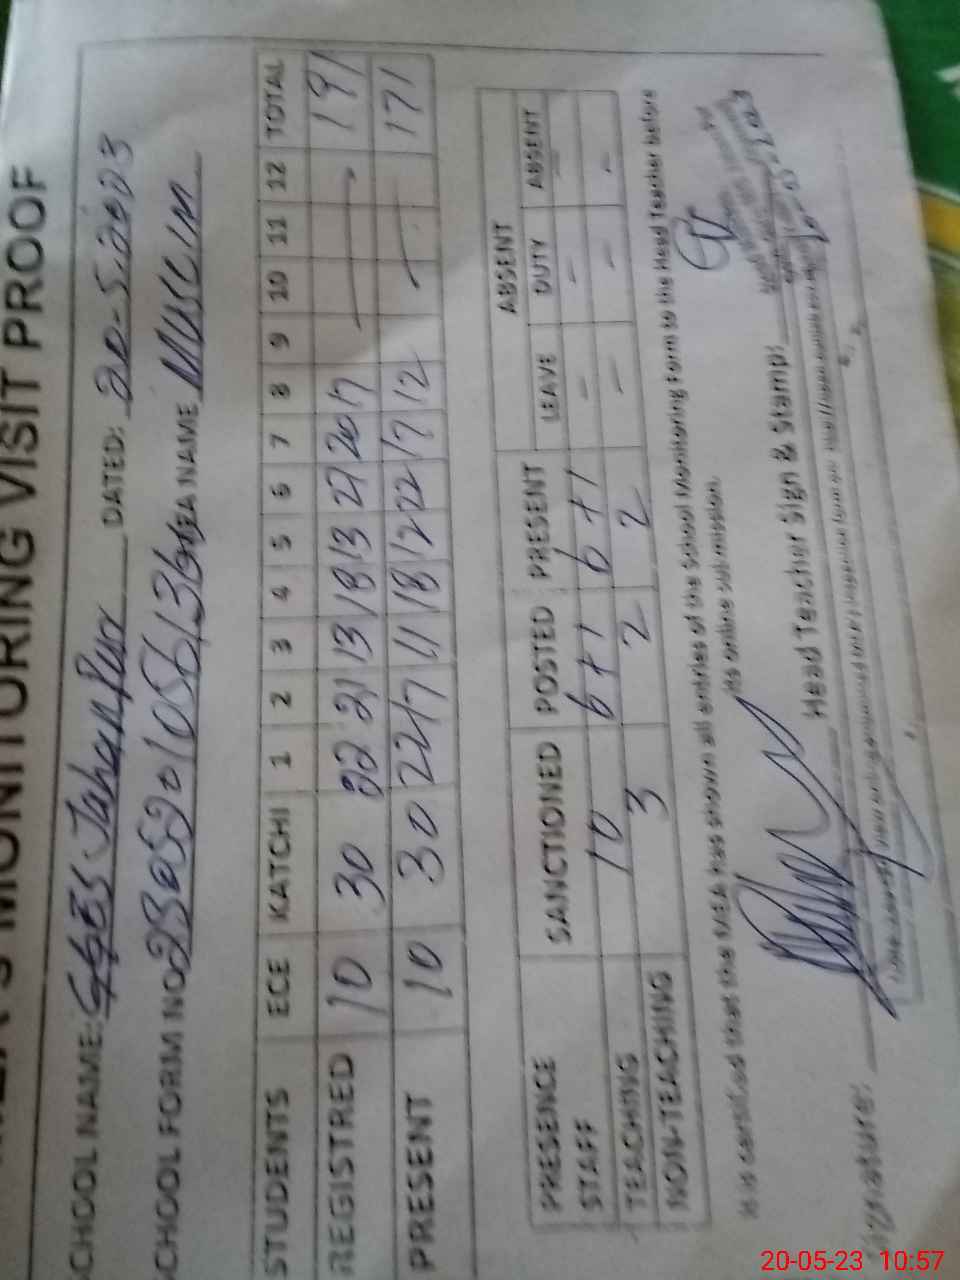 MONITORING VISIT PROOF
SCHOOL NAME: GGES Jahanpur DATED: 20-5-2023
SCHOOL FORM NO. MEA NAME MUSLIM
STUDENTS ECE KATCHI 1 2 3 4 5 6 7 8 9 10 11 12 TOTAL
REGISTRED 10 30 22 21 13 18 13 27 20 17 — 191
PRESENT 10 30 22 17 11 18 12 22 17 12 — 171
PRESENCE SANCTIONED POSTED PRESENT ABSENT
STAFF LEAVE DUTY ABSENT
TEACHING 10 6+1 6+1 - - -
NON-TEACHING 3 2 2 - - -
It is certified that the MEA has shown all entries of the School Monitoring Form to the Head Teacher before
its online submission.
Signature: Head Teacher Sign & Stamp:
20-05-23 10:57